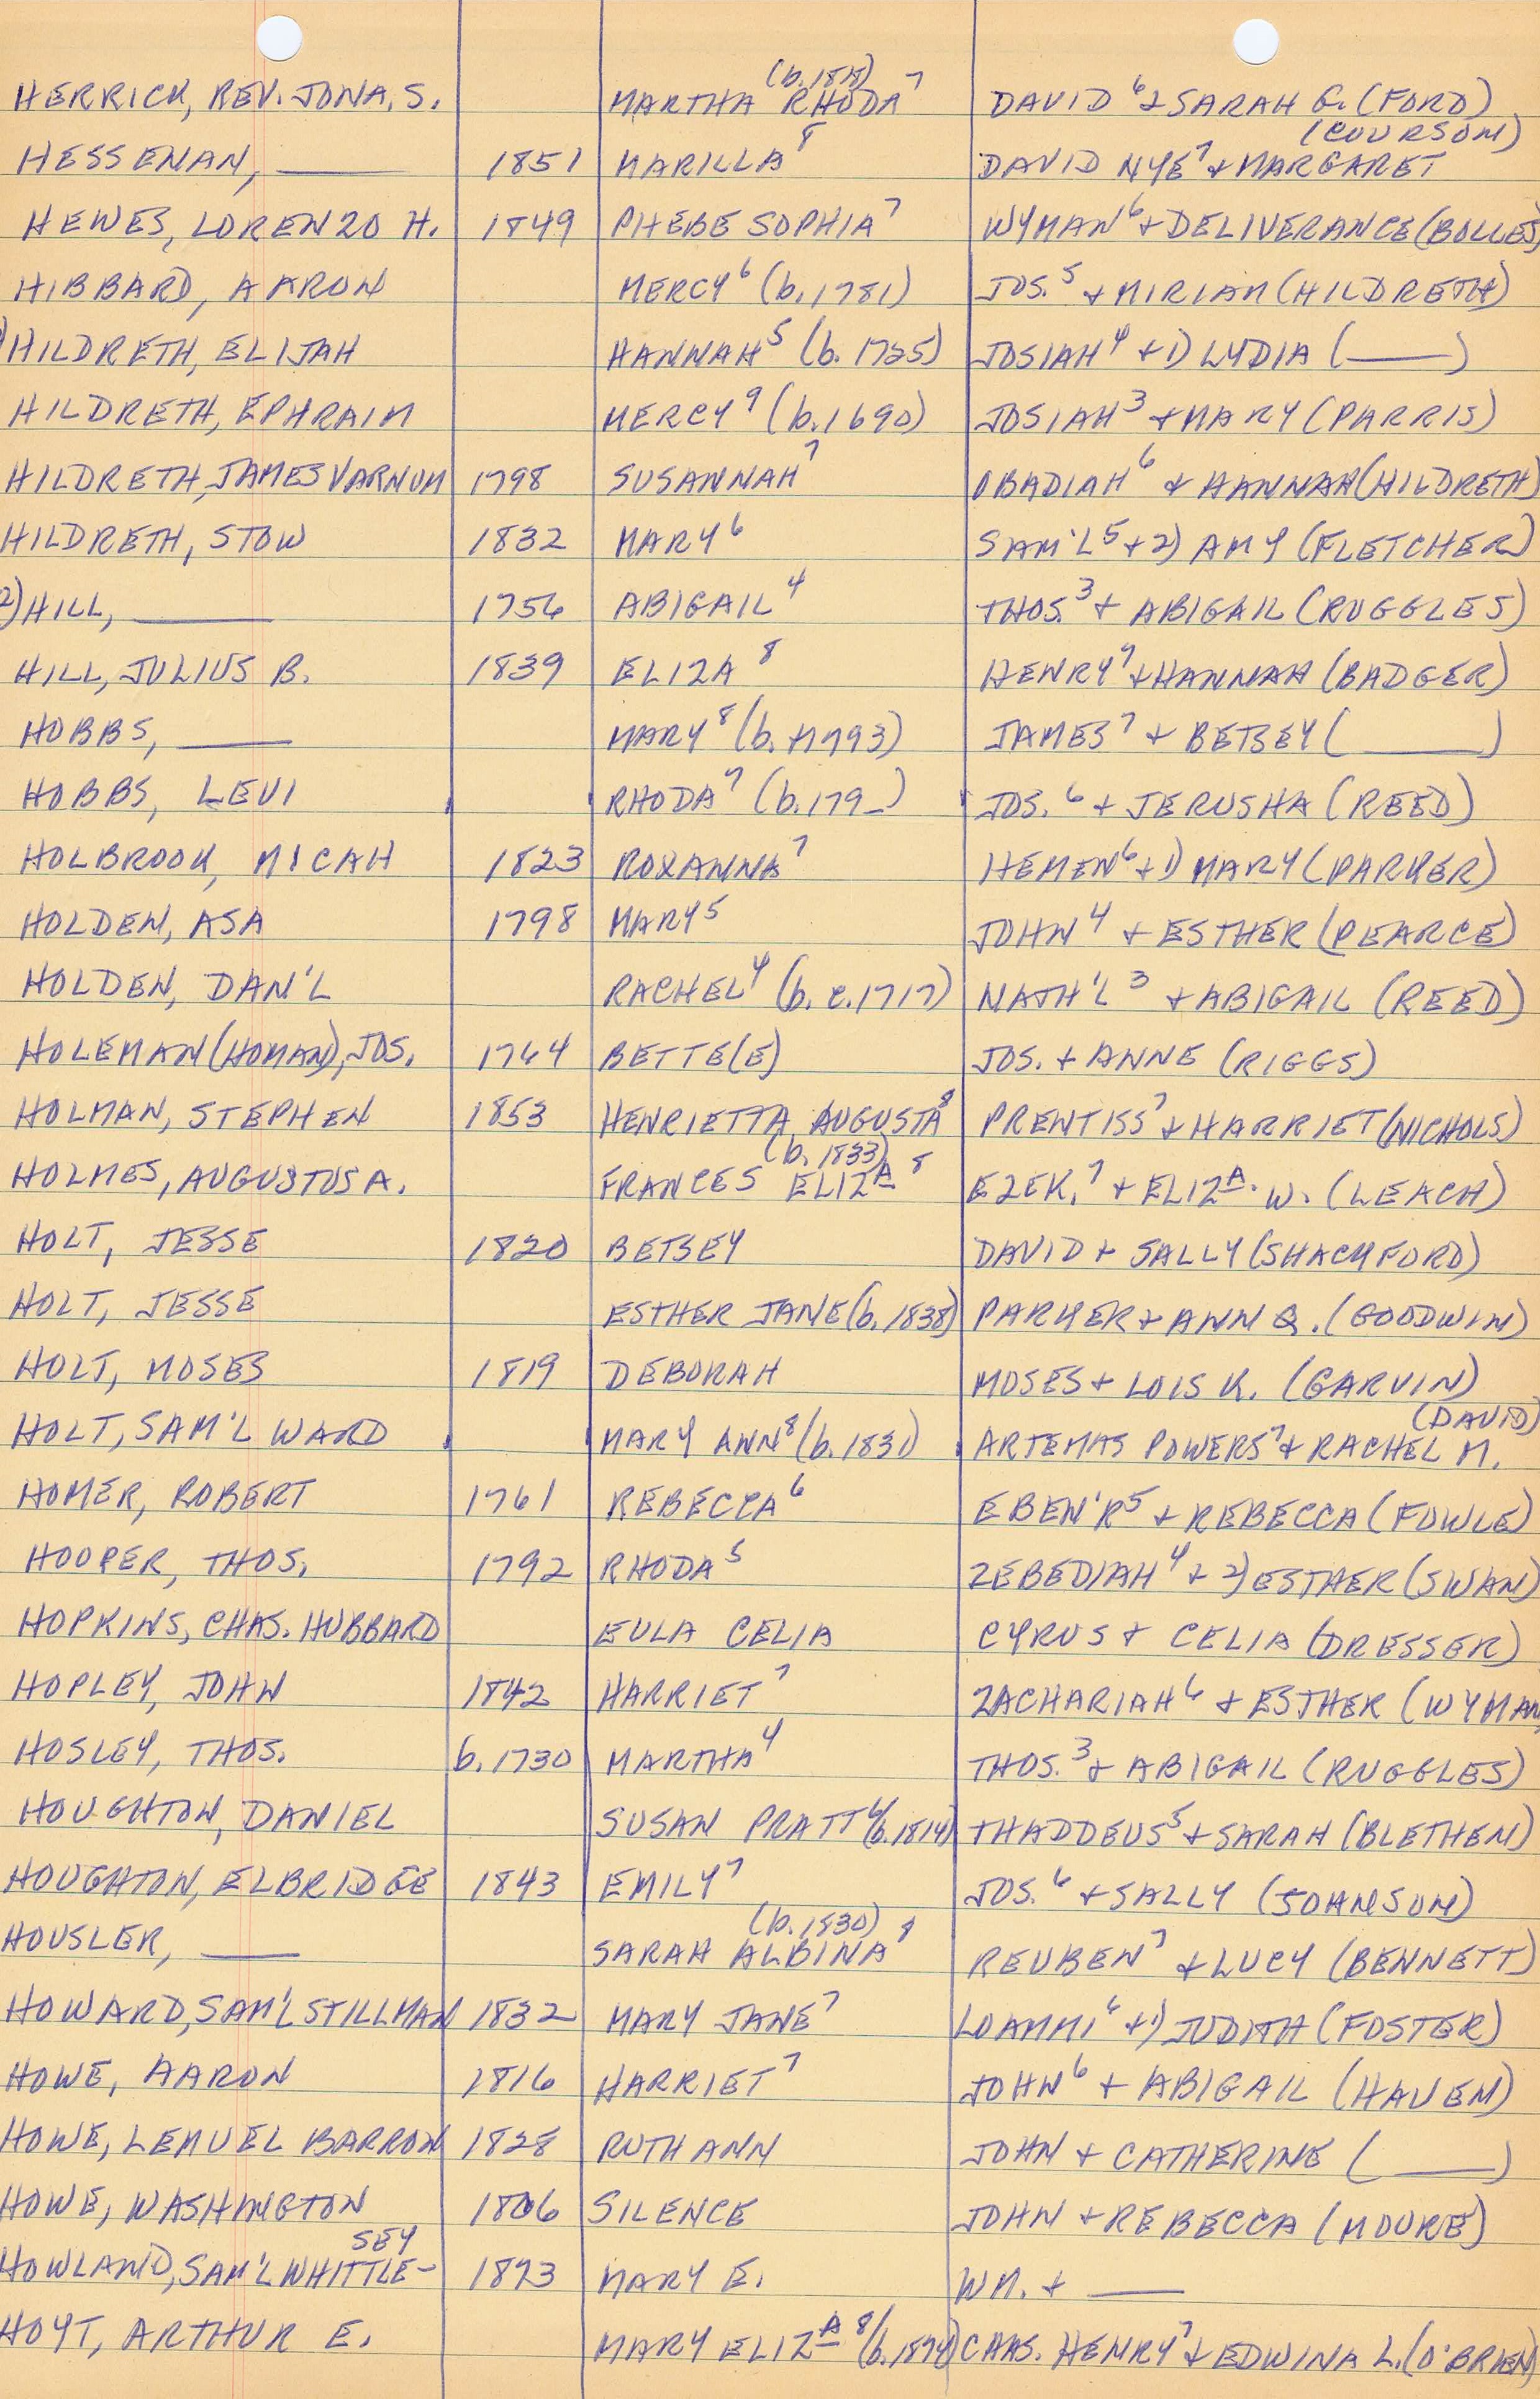 HERRICK, REV. JONA. S. MARTHA RHODA⁷ (b. 1818) DAVID⁶ + SARAH G. (FORD)
HESSENAN, ——— 1851 MARILLA⁸ DAVID NYE⁷ + MARGARET (COURSON)
HEWES, LORENZO H. 1849 PHEBE SOPHIA⁷ WYMAN⁶ + DELIVERANCE (BOLLES)
HIBBARD, AARON MERCY⁶ (b. 1781) JOS.⁵ + MIRIAM (HILDRETH)
)HILDRETH, ELIJAH HANNAH⁵ (b. 1725) JOSIAH⁴ + 1) LYDIA (———)
HILDRETH, EPHRAIM MERCY⁹ (b. 1690) JOSIAH³ + MARY (PARRIS)
HILDRETH, JAMES VARNUM 1798 SUSANNAH⁷ OBADIAH⁶ + HANNAH (HILDRETH)
HILDRETH, STOW 1832 MARY⁶ SAM'L⁵ + 2) AMY (FLETCHER)
2) HILL, ——— 1756 ABIGAIL⁴ THOS.³ + ABIGAIL (RUGGLES)
HILL, JULIUS B. 1839 ELIZA⁸ HENRY⁷ + HANNAH (BADGER)
HOBBS, ——— MARY⁸ (b. 1793) JAMES⁷ + BETSEY (———)
HOBBS, LEVI RHODA⁷ (b. 179_) JOS.⁶ + JERUSHA (REED)
HOLBROOK, MICAH 1823 ROXANNA⁷ HEMEN⁶ + 1) MARY (PARKER)
HOLDEN, ASA 1798 MARY⁵ JOHN⁴ + ESTHER (PEARCE)
HOLDEN, DAN'L RACHEL⁴ (b. c. 1717) NATH'L³ + ABIGAIL (REED)
HOLEMAN (HOMAN), JOS. 1764 BETTE(E) JOS. + ANNE (RIGGS)
HOLMAN, STEPHEN 1853 HENRIETTA AUGUSTA⁸ PRENTISS⁷ + HARRIET (NICHOLS)
HOLMES, AUGUSTUS A. FRANCES ELIZA⁸ (b. 1833) EZEK.⁷ + ELIZA. W. (LEACH)
HOLT, JESSE 1820 BETSEY DAVID + SALLY (SHACKFORD)
HOLT, JESSE ESTHER JANE (b. 1838) PARKER + ANN Q. (GOODWIN)
HOLT, MOSES 1819 DEBORAH MOSES + LOIS K. (GARVIN)
HOLT, SAM'L WARD MARY ANN⁸ (b. 1831) ARTEMAS POWERS⁷ + RACHEL M. (DAVID)
HOMER, ROBERT 1761 REBECCA⁶ EBEN'R⁵ + REBECCA (FOWLE)
HOOPER, THOS. 1792 RHODA⁵ ZEBEDIAH⁴ + 2) ESTHER (SWAN)
HOPKINS, CHAS. HUBBARD EULA CELIA CYRUS + CELIA (DRESSER)
HOPLEY, JOHN 1842 HARRIET⁷ ZACHARIAH⁶ + ESTHER (WYMAN)
HOSLEY, THOS. b. 1730 MARTHA⁴ THOS.³ + ABIGAIL (RUGGLES)
HOUGHTON, DANIEL SUSAN PRATT⁶ (b. 1814) THADDEUS⁵ + SARAH (BLETHEN)
HOUGHTON, ELBRIDGE 1843 EMILY⁷ JOS.⁶ + SALLY (JOHNSON)
HOUSLER, ——— SARAH ALBINA⁸ (b. 1830) REUBEN⁷ + LUCY (BENNETT)
HOWARD, SAM'L STILLMAN 1832 MARY JANE⁷ LOAMMI⁶ + 1) JUDITH (FOSTER)
HOWE, AARON 1816 HARRIET⁷ JOHN⁶ + ABIGAIL (HAVEN)
HOWE, LEMUEL BARRON 1828 RUTH ANN JOHN + CATHERINE (———)
HOWE, WASHINGTON 1806 SILENCE JOHN + REBECCA (MOORE)
HOWLAND, SAM'L WHITTLE-SEY 1873 MARY E. WM. + ———
HOYT, ARTHUR E. MARY ELIZA⁸ (b. 1874) CHAS. HENRY⁷ + EDWINA L. (O'BRIEN)